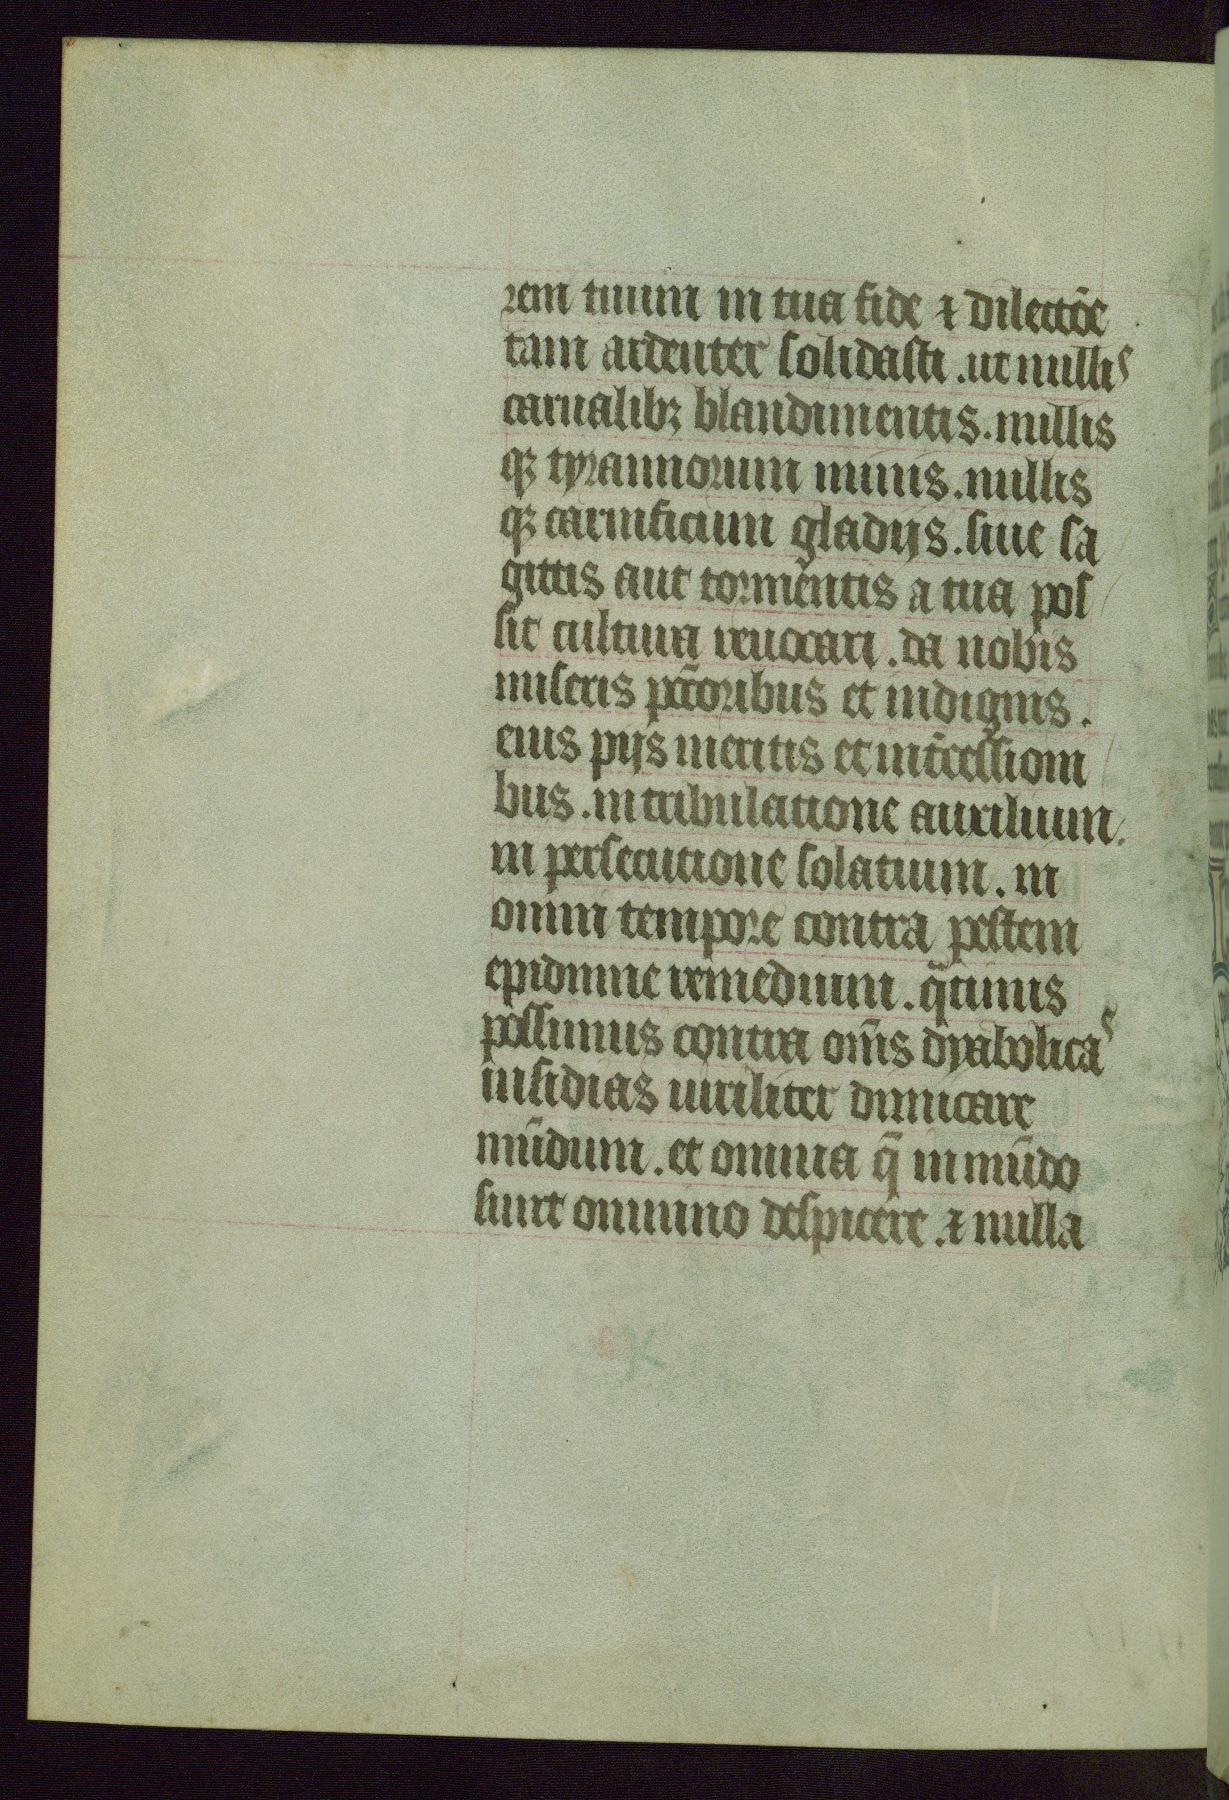 rem tuum in tua fide ⁊ dilectōe
tam ardenter solidasti . ut nullis
carnalibꝫ blandimentis . nullis
qꝫ tyrannorum minis . nullis
qꝫ carnificum gladijs . siue sa
gittis aut tormentis a tua pos
sit cultura reuocari . da nobis
miseris pctōribus et indignis .
eius pijs meritis et intercessioni
bus . in tribulatione auxilium .
in persecutione solatium . in
omni tempore contra pestem
epidimie remedium . qtinus
possimus contra om̄s dyabolicas
insidias uiriliter dimicare
mūdum . et omnia q̄ in mūdo
sunt omnino despicere . ⁊ nulla